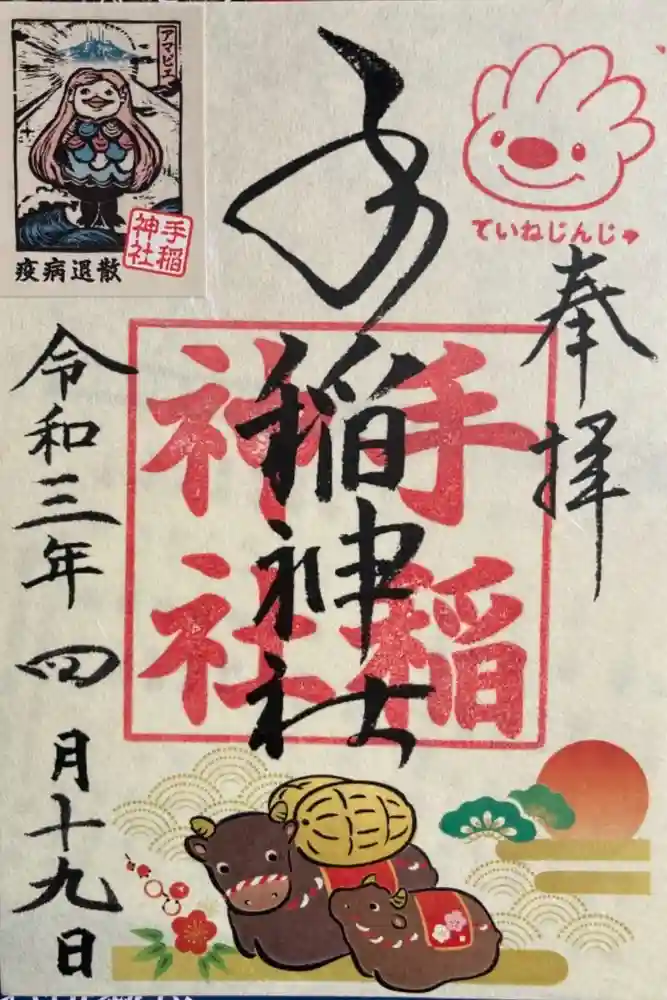 奉拝
ていねじんじゃ
手稲神社
手稲
神社
令和三年四月十九日
アマビエ
手稲
神社
疫病退散